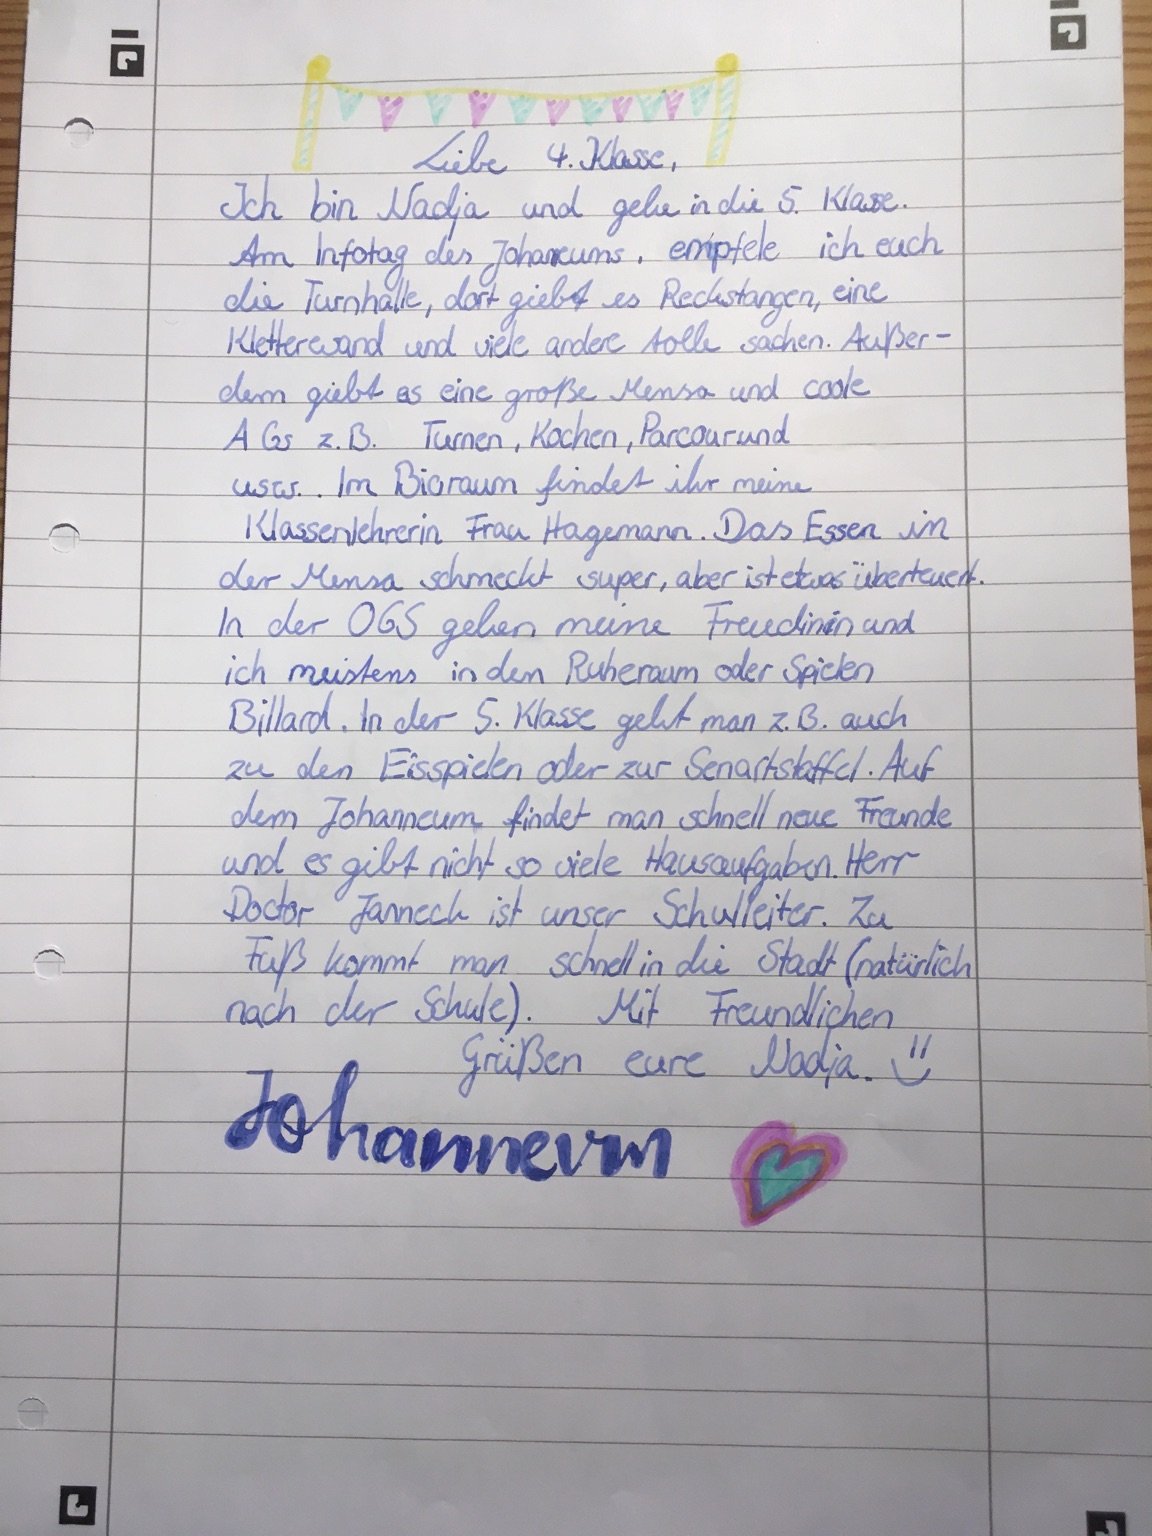 Liebe 4. Klasse,
Ich bin Nadja und gehe in die 5. Klasse.
Am Infotag des Johaneums, empfele ich euch
die Turnhalle, dort giebt es Reckstangen, eine
Kletterwand und viele andere tolle sachen. Außer-
dem giebt es eine große Mensa und coole
AGs z.B. Turnen, Kochen, Parcour und
usw.. Im Bioraum findet ihr meine
Klassenlehrerin Frau Hagemann. Das Essen in
der Mensa schmeckt super, aber ist etwas überteuert.
In der OGS gehen meine Freudinin und
ich meistens in den Ruheraum oder Spielen
Billard. In der 5. Klasse geht man z.B. auch
zu den Eisspielen oder zur Senartstaffel. Auf
dem Johanneum findet man schnell neue Freunde
und es gibt nicht so viele Hausaufgaben. Herr
Doctor Janneck ist unser Schulleiter. Zu
Fuß kommt man schnell in die Stadt (natürlich
nach der Schule). Mit Freundlichen
Grüßen eure Nadja.
Johanneum